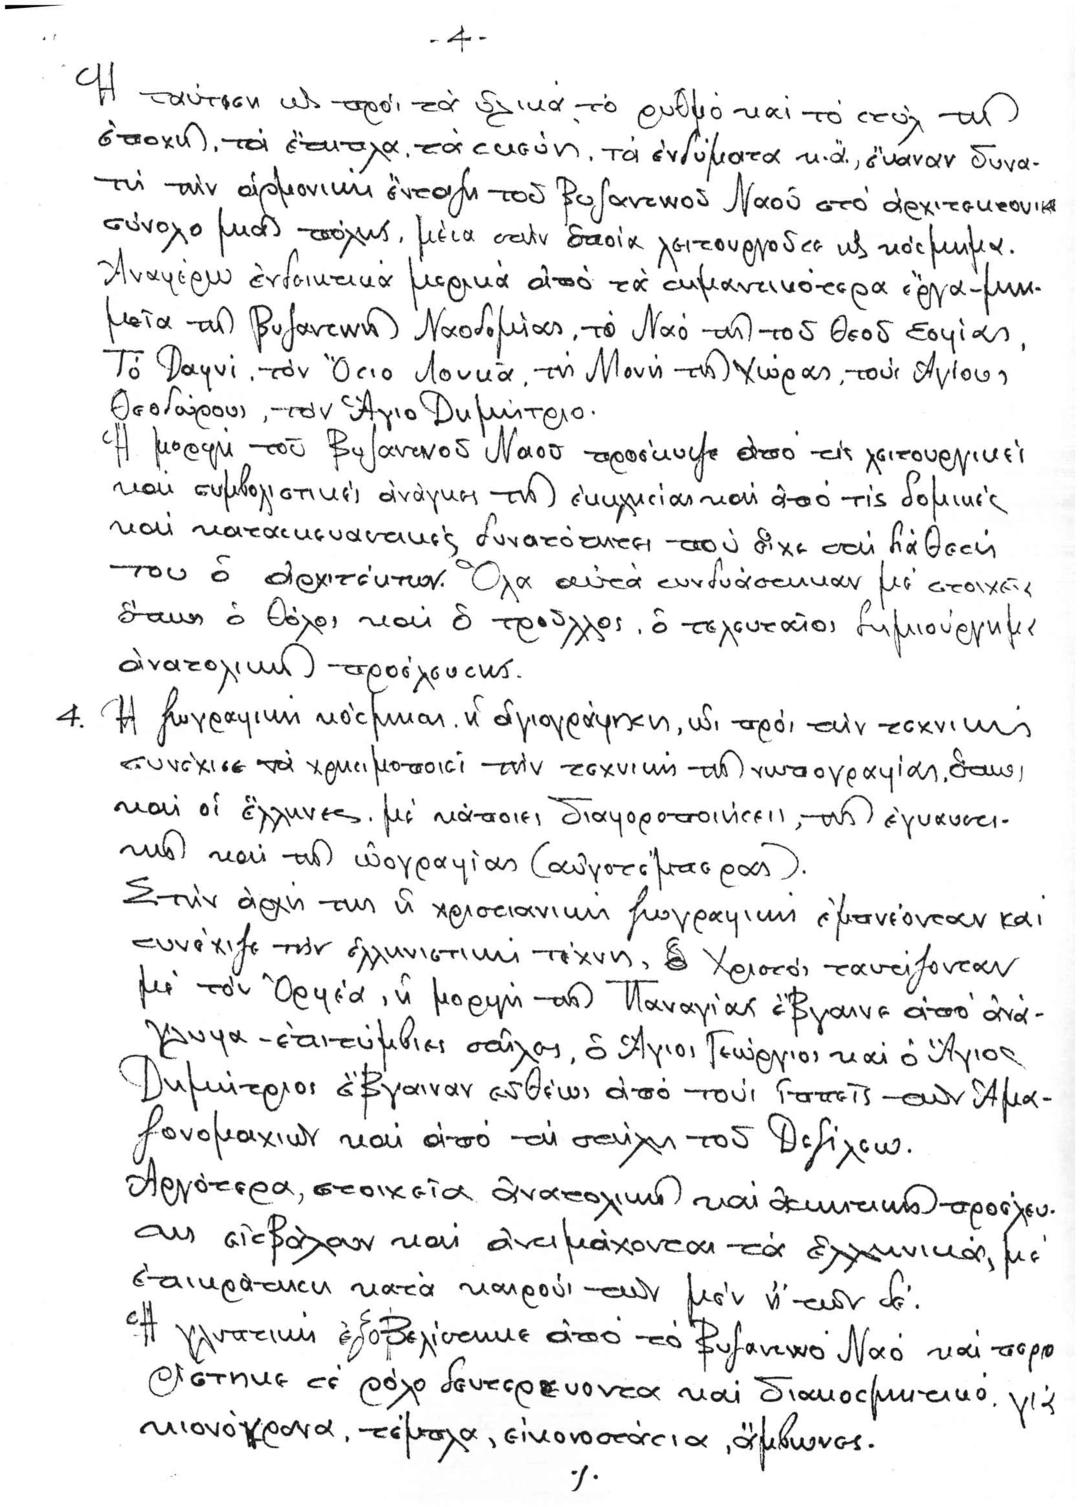 - 4 -
Ἡ ταύτιση ὡς πρός τά ὑλικά, τό ρυθμό καί τό στύλ τῆς
ἐποχῆς, τά ἔπιπλα, τά σκεύη, τά ἐνδύματα κ.ἄ., ἔκαναν δυνα-
τή τήν ἁρμονική ἔνταξη τοῦ Βυζαντινοῦ Ναοῦ στό ἀρχιτεκτονικό
σύνολο μιᾶς πόλης, μέσα στήν ὁποία λειτουργοῦσε ὡς κόσμημα.
Ἀναφέρω ἐνδεικτικά μερικά ἀπό τά σημαντικότερα ἔργα-μνη-
μεῖα τῆς Βυζαντινῆς Ναοδομίας, τό Ναό τῆς τοῦ Θεοῦ Σοφίας,
Τό Δαφνί, τόν Ὅσιο Λουκᾶ, τή Μονή τῆς Χώρας, τούς Ἁγίους
Θεοδώρους, τόν Ἅγιο Δημήτριο.
Ἡ μορφή τοῦ Βυζαντινοῦ Ναοῦ προσέκυψε ἀπό τίς λειτουργικές
καί συμβολιστικές ἀνάγκες τῆς ἐκκλησίας καί ἀπό τίς δομικές
καί κατασκευαστικές δυνατότητες πού εἶχε στή διάθεσή
του ὁ ἀρχιτέκτων. Ὅλα αὐτά συνδυάστηκαν μέ στοιχεῖα
ὅπως ὁ θόλος καί ὁ τροῦλλος, ὁ τελευταῖος δημιούργημα
ἀνατολικῆς προέλευσης.
4. Ἡ ζωγραφική κόσμηση, ἡ ἁγιογράφηση, ὡς πρός τήν τεχνική
συνέχισε νά χρησιμοποιεῖ τήν τεχνική τῆς νωπογραφίας, ὅπως
καί οἱ ἕλληνες, μέ κάποιες διαφοροποιήσεις, τῆς ἐγκαυστι-
κῆς καί τῆς ὠογραφίας (αὐγοτέμπερας).
Στήν ἀρχή της ἡ χριστιανική ζωγραφική ἐμπνέονταν καί
συνέχιζε τήν ἑλληνιστική τέχνη, ὁ Χριστός ταυτίζονταν
μέ τόν Ὀρφέα, ἡ μορφή τῆς Παναγίας ἔβγαινε ἀπό ἀνά-
γλυφα-ἐπιτύμβιες στῆλες, ὁ Ἅγιος Γεώργιος καί ὁ Ἅγιος
Δημήτριος ἔβγαιναν εὐθέως ἀπό τούς ἱππεῖς τῶν Ἀμα-
ζονομαχιῶν καί ἀπό τή στήλη τοῦ Δεξίλεω.
Ἀργότερα, στοιχεῖα ἀνατολικῆς καί λαϊκῆς προέλευ-
σης εἰσβάλουν καί ἀντιμάχονται τά ἑλληνικά, μέ
ἐπικράτηση κατά καιρούς τῶν μέν ἤ τῶν δέ.
Ἡ γλυπτική ἐξοβελίστηκε ἀπό τό Βυζαντινό Ναό καί περιο
ρίστηκε σέ ρόλο δευτερεύοντα καί διακοσμητικό, γιά
κιονόκρανα, τέμπλα, εἰκονοστάσια, ἄμβωνες.
./.